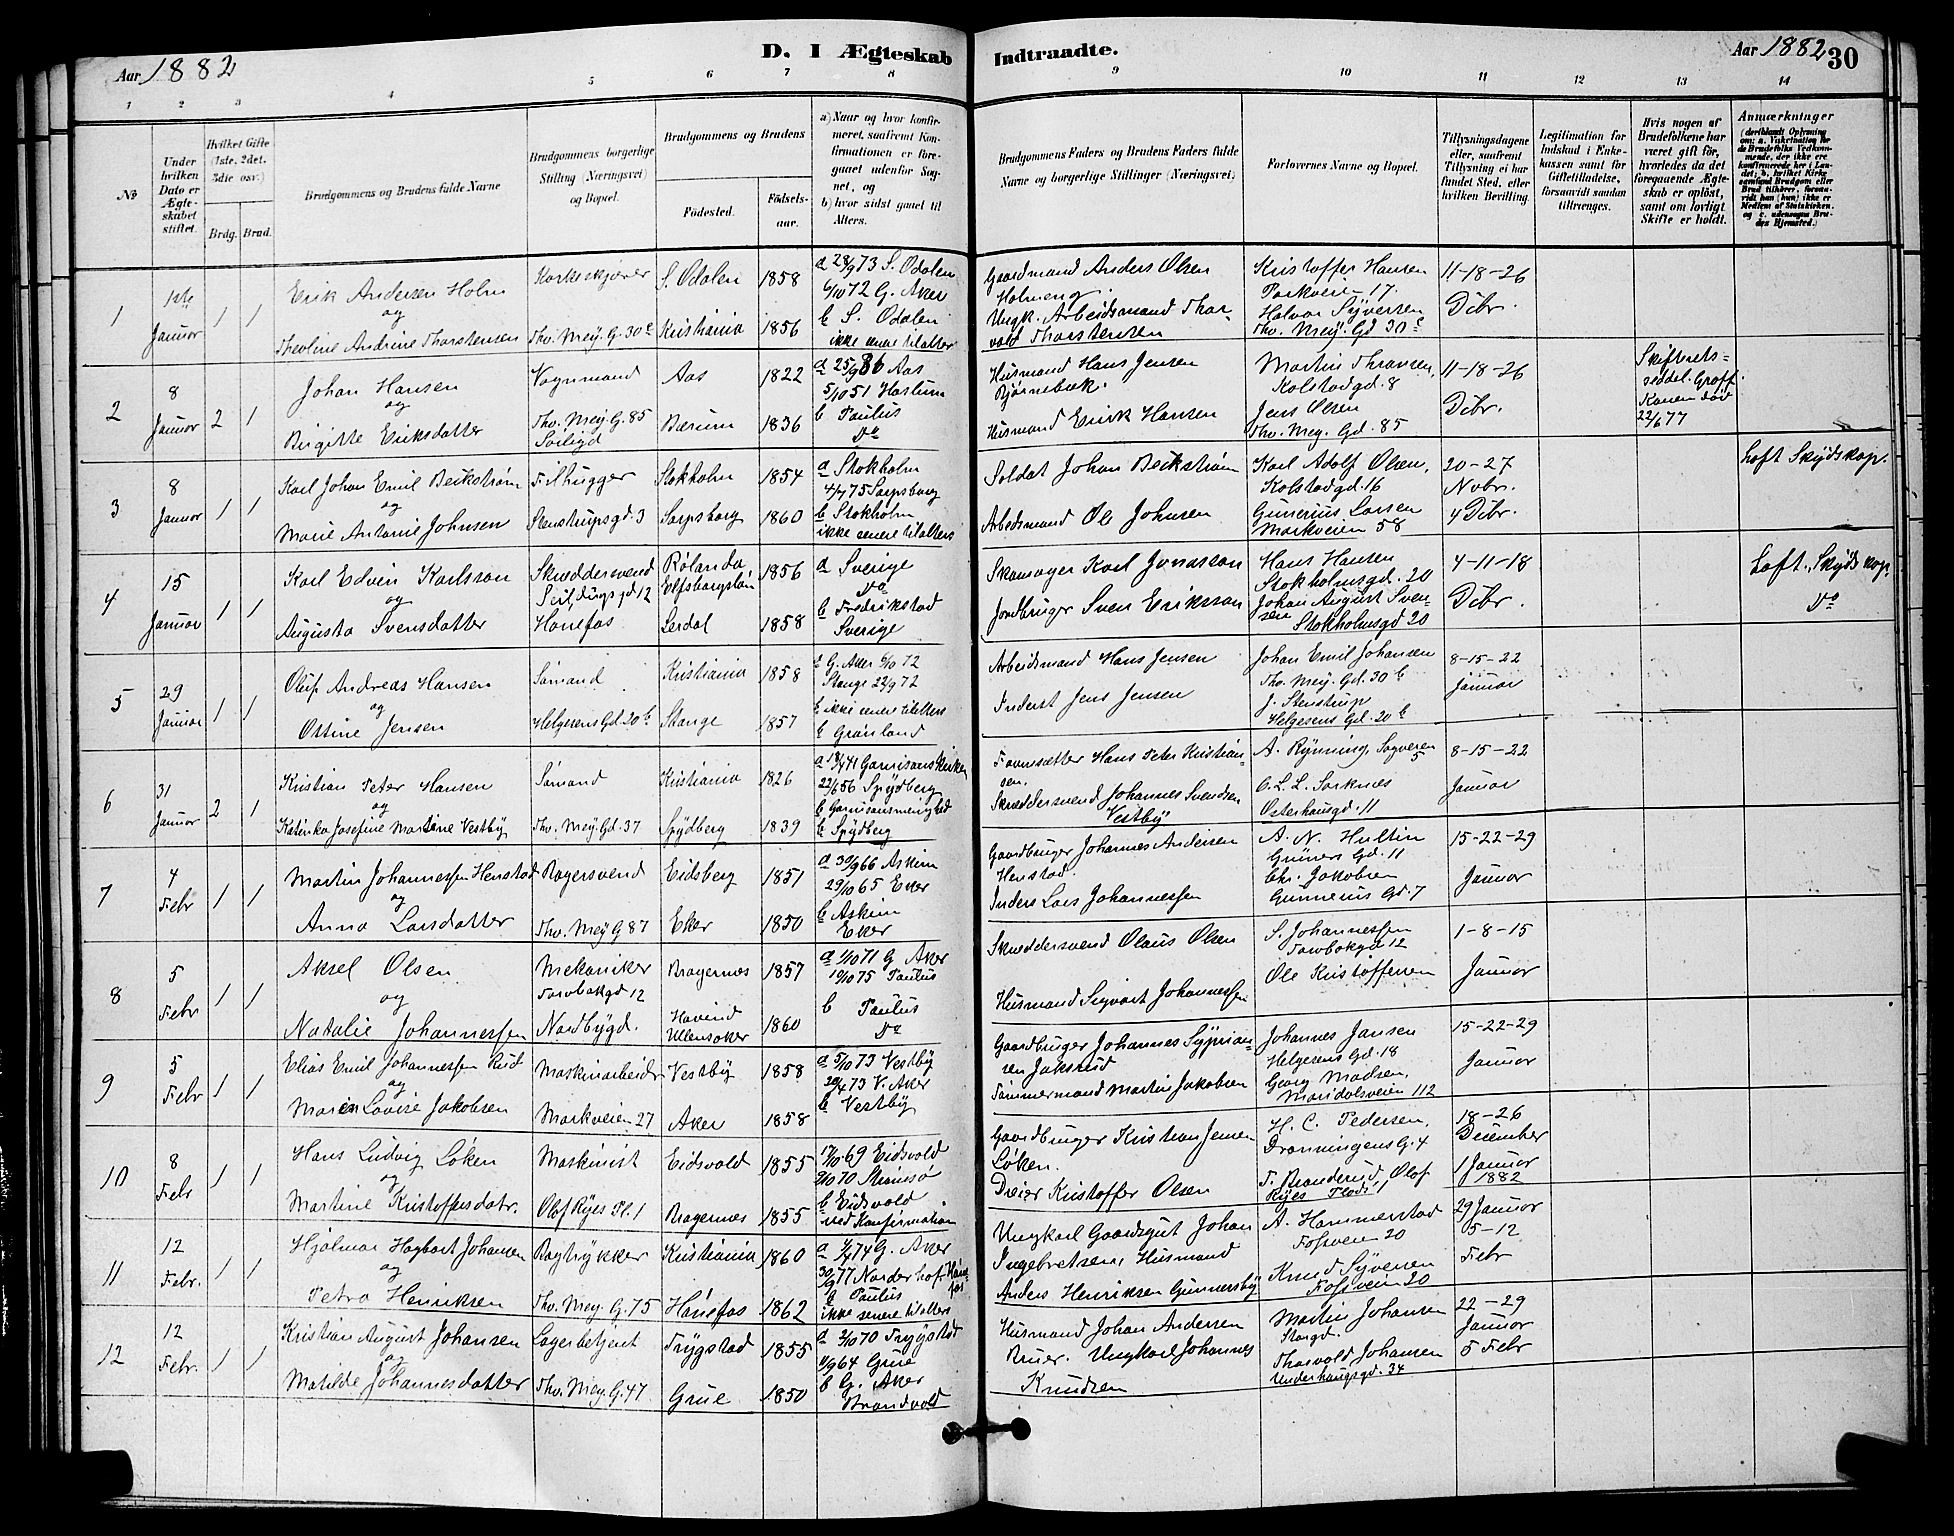 Aar 1882
D. I Ægteskab Indtraadte.
Aar 1882 30
1 2 3 4 5 6 7 8 9 10 11 12 13 14
No
Under hvilken Dato er Ægteskabet stiftet.
Hvilket Gifte (1ste, 2det, 3die osv.)
Brdg. Brud.
Brudgommens og Brudens fulde Navne
Brudgommens borgerlige Stilling (Næringsvei) og Bopæl.
Brudgommens og Brudens
Födested.
Födselsaar.
a) Naar og hvor konfirmeret, saafremt Konfirmationen er foregaaet udenfor Sognet, og
b) hvor sidst gaaet til Alters.
Brudgommens Faders og Brudens Faders fulde Navne og borgerlige Stillinger (Næringsvei)
Forlovernes Navne og Bopæl.
Tillysningsdagene eller, saafremt Tillysning ei har fundet Sted, efter hvilken Bevilling.
Legitimation for Indskud i Enkekassen samt for Giftetilladelse, forsaavidt saadan tiltrænges.
Hvis nogen af Brudefolkene har været gift för, hvorledes da det foregaaende Ægteskab er oplöst, samt om lovligt Skifte er holdt.
Anmærkninger
1 1ste Januar 1 1
Erik Andersen Holm
og
Theoline Andrine Thorstensen
Korkeskjærer
Thv. Mey. G. 30c
S. Odalen 1858
Kristiania 1856
a 28/9 73 S. Odalen
6/10 72 G. Aker
b S. Odalen
ikke senere til alters
Gaardmand Anders Olsen
Holmeng.
Ungk. Arbeidsmand Thorvald Thorstensen
Kristoffer Hansen
Parkveien 17.
Halvor Syversen
Thv. Mey. Gd 30c
11-18-26
Dcbr.
2 8 Januar 2 1
Johan Hansen
og
Birgitte Eriksdatter
Vognmand
Thv. Mey. G. 85
Aas 1822
Bærum 1836
a 25/9 36 Aas
5/10 51 Haslum
b Paulus
Do
Husmand Hans Jensen
Bjørnebæk.
Husmand Erik Hansen
Kolstadgd. 8
Jens Olsen
Thv. Mey. Gd. 85
11-18-26
Dcbr.
Skifterets-
seddel. Groff.
Konen død
22/6 77
3 8 Januar 1 1
Karl Johan Emil Beckstrøm
og
Marie Antonie Johnsen
Filhugger
Stenstrupsgd. 3
Stokholm 1854
Sarpsborg 1860
a Stokholm
4/7 75 Sarpsborg
b Stokholm
ikke senere til alters
Soldat Johan Beckstrøm
Arbeidsmand Ole Johnsen
Karl Adolf Olsen,
Kolstadgd. 16
Gunerius Larsen
Markveien 58
20-27
Nvbr.
4 Dcbr.
Loft Skydskop.
4 15 Januar 1 1
Karl Edvin Karlsson
og
Augusta Svensdatter
Skræddersvend
Hønefos
Rølanda
Elfsborgslän 1856
Serdal 1858
a Sverige
Do
b Fredrikstad
Sverige
Skomager Karl Jonasson
Jordbruger Sven Eriksson
Hans Hansen
Stokholmsgd. 20
Johan August Svensen
Stokholmsgd 20
4-11-18
Dcbr.
Loft. Skydskop.
Do
5 29 Januar 1 1
Oluf Andreas Hansen
og
Ottine Jensen
Sømand
Helgesens Gd. 20b
Kristiania 1858
Stange 1857
G. Aker 6/10 72
Stange 22/9 72
b ikke senere til alters
b Grønland
Arbeidsmand Hans Jensen
Inderst Jens Jensen
Johan Emil Johansen
Thv. Mey. Gd. 30b
J. Stenstrup
Helgesens Gd. 20b
8-15-22
Januar
6 31 Januar 2 1
Kristian Peter Hansen
og
Katinka Josefine Martine Vestby
Sømand
Thv. Mey. Gd. 37
Kristiania 1826
Spydberg 1839
Garnisonskirken
22/6 56 Spydberg
b Garnisonsmenighed
b Spydberg
Hans Peter Kristiansen.
Skræddersvend Johannes Svendsen
Vestby
A. Rynning, Sagveien 5
O. L. L. Sorknes
Osterhausgd. 11
8-15-22
Januar
7 4 Febr 1 1
Martin Johannessen Henstad
og
Anna Larsdatter
Bagersvend
Thv. Mey G 87
Eidsberg 1851
Eker 1850
a 30/9 66 Askim
29/10 65 Eker
b Askim
Eker
Gaardbruger Johannes Andersen
Henstad.
Inders Lars Johannessen
A. N. Hultin
Grüners Gd. 11
Chr. Jakobsen
Gunnerius Gd. 7
15-22-29
Januar
8 5 Febr 1 1
Aksel Olsen
og
Natalie Johannessen
Mekaniker
Torvbakgd 12
Nordbygd.
Bragernes 1857
Hovind
Ullensaker 1860
a 1/10 71 G. Aker
10/10 75 Paulus
b Paulus
Do
Skræddersvend Olaus Olsen
Husmand Sigvart Johannessen
S. Johannessen
Torvbakgd 12
Ole Kristoffersen
1-8-15
Januar
9 5 Febr 1 1
Elias Emil Johannessen Rud
og
Maren Lovise Jakobsen
Maskinarbeider
Markveien 27
Vestby 1858
Aker 1858
a 5/10 73 Vestby
20/4 73 V. Aker
b Vestby
Gaardbruger Johannes Syprian-
sen Jaksrud
Tømmermand Martin Jakobsen
Johannes Jansen
Helgesens Gd. 18
Georg Madsen,
Maridalsveien 112
15-22-29
Januar
10 8 Febr 1 1
Hans Ludvig Løken
og
Martine Kristoffersdatr.
Maskinist
Olaf Ryes Pl. 1
Eidsvold 1855
Bragernes 1855
17/10 69 Eidsvold
9/10 70 Strømsø
b Eidsvold
ved Konfirmation
Gaardbruger Kristian Jensen
Løken.
Dreier Kristoffer Olsen
H. C. Pedersen,
Dronningens G. 4
F. Branderud, Olof
Ryes Plads 1
18-26
December
1 Januar
1882
11 12 Febr. 1 1
Hjalmar Hagbart Johansen
og
Petra Henriksen
Bogtrykker
Thv. Mey. G. 75
Kristiania 1860
Hønefos 1862
a 1/4 74 G. Aker
30/9 77 Norderhof
b Paulus
ikke senere til alters
Ungkarl Gaardsgut Johan
Ingebretsen, Husmand
Anders Henriksen Gunnersby
A. Hammerstad
Fossveien 20
Knud Syversen
Fossveien 20
29 Januar
5-12
Febr
12 12 Febr. 1 1
Kristian August Johansen
og
Matilde Johannesdatter
Lagerbetjent
Thv. Mey. G. 47
Trygstad 1855
Grue 1850
a 2/10 70 Trygstad
11/9 64 Grue
b G. Aker
Brandvold
Husmand Johan Andersen
Bruer. Ungkarl Johannes
Knudsen
Martin Johansen
Storgd.
Thorvald Johansen
Underhaugsgd. 34
22-29
Januar
5 Febr